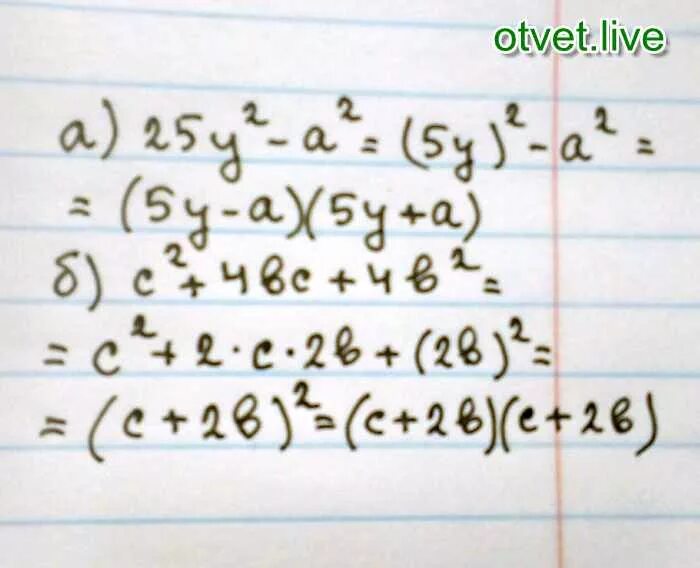 otvet.live
а) 25y² - a² = (5y)² - a² =
= (5y - a)(5y + a)
б) c² + 4вc + 4в² =
= c² + 2 · c · 2в + (2в)² =
= (c + 2в)² = (c + 2в)(c + 2в)